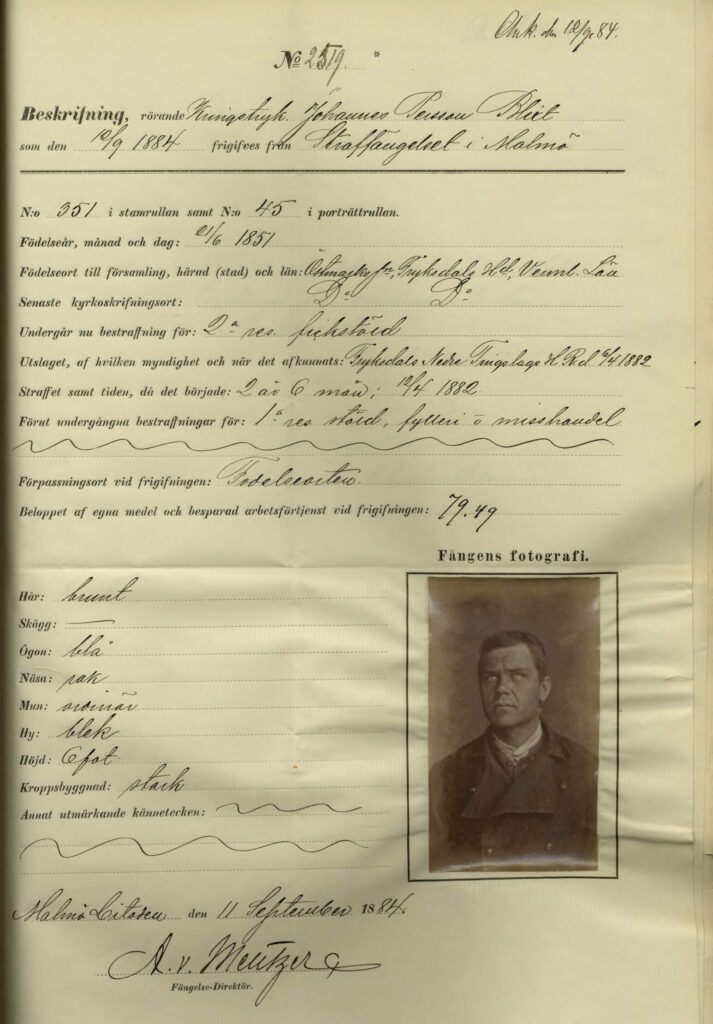 Ank. den 12/9 84.
No 2519.
Beskrifning, rörande Johannes Persson
som den 12/9 1884 frigifves från Straffängelset i Malmö
N:o 351 i stamrullan samt N:o 45 i porträttrullan.
Födelseår, månad och dag: 21/6 1851
Födelseort till församling, härad (stad) och län: Östmarks Fryksdals Hd, Verml. Län
Senaste kyrkoskrifningsort: Do Do
Undergår nu bestraffning för: 2a res. fickstöld
Utslaget, af hvilken myndighet och när det afkunnats: Fryksdals Nedre Tingslags H. R. d. 1882
Straffet samt tiden, då det började: 2 år 6 mån; 12/4 1882
Förut undergångna bestraffningar för: 1a res. stöld, fylleri o misshandel
Förpassningsort vid frigifningen: Födelseorten.
Beloppet af egna medel och besparad arbetsförtjenst vid frigifningen: 79.49
Fångens fotografi.
Hår: brunt
Skägg: —
Ögon: blå
Näsa: rak
Mun: ordinär
Hy: blek
Höjd: 6 fot
Kroppsbyggnad: stark
Annat utmärkande kännetecken:
Malmö Citaden den 11 September 1884.
A. v. Mentzer
Fängelse-Direktör.